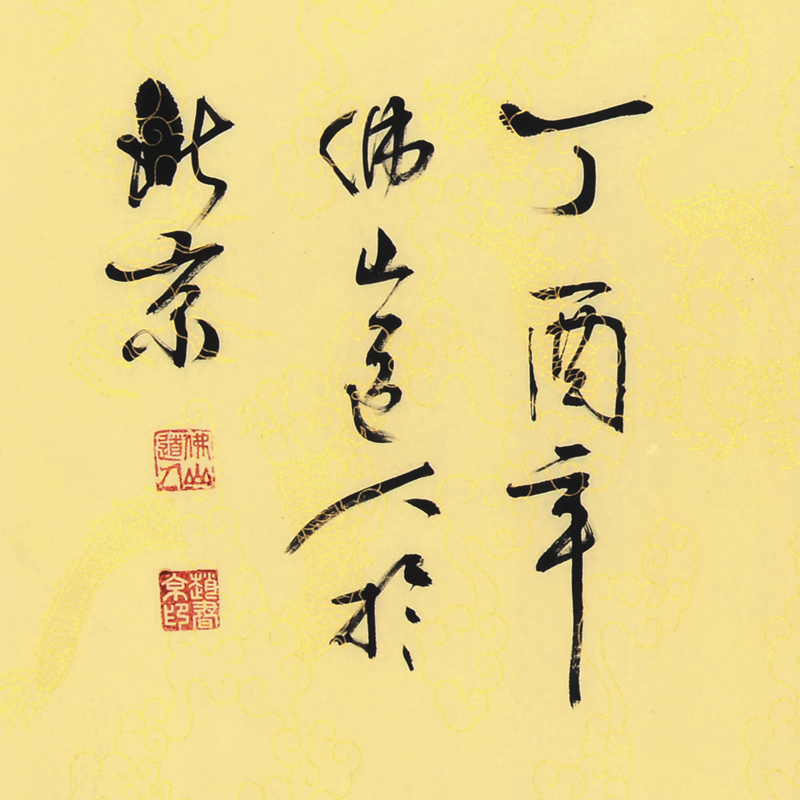 丁酉年
佛山道人於
北京
佛山
道人
趙
京印